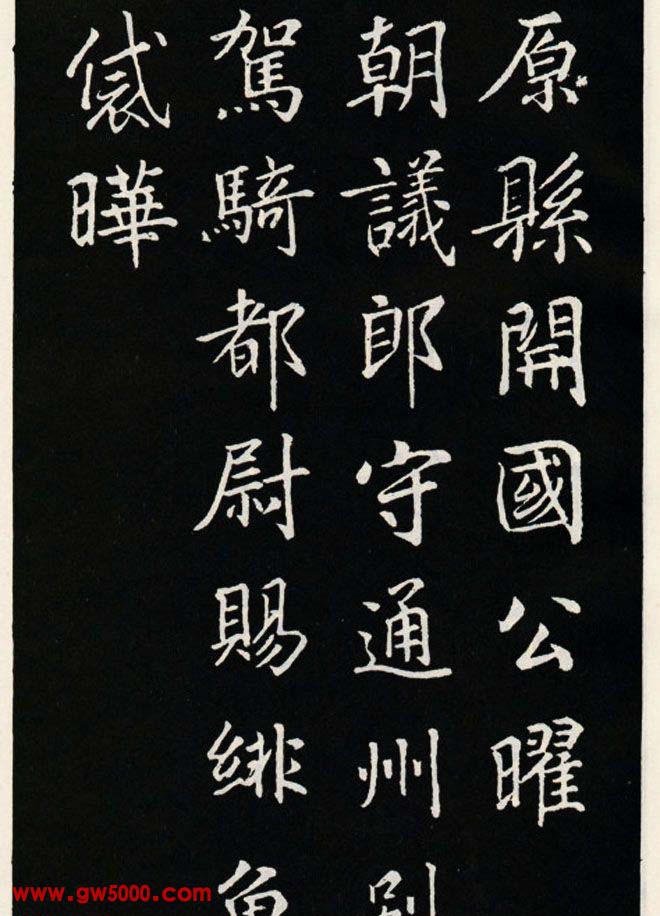 原縣開國公曜
朝議郎守通州別
駕騎都尉賜緋魚
袋曄
www.gw5000.com